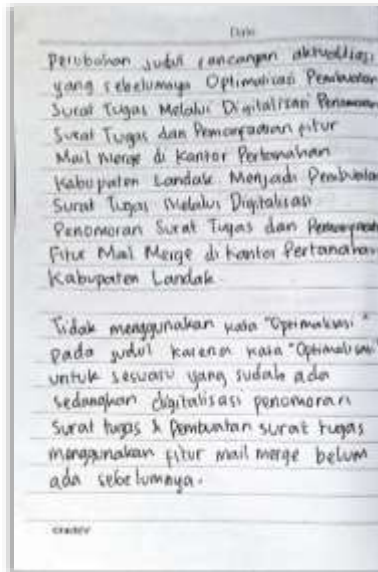 Date
Perubahan judul rancangan aktualisasi
yang sebelumnya Optimalisasi Pembuatan
Surat Tugas Melalui Digitalisasi Penomoran
Surat Tugas dan Pemanfaatan fitur
Mail Merge di Kantor Pertanahan
Kabupaten Landak Menjadi Pembuatan
Surat Tugas Melalui Digitalisasi
Penomoran Surat Tugas dan Pemanfaatan
Fitur Mail Merge di Kantor Pertanahan
Kabupaten Landak.
Tidak menggunakan kata "Optimalisasi"
pada judul karena kata "Optimalisasi"
untuk sesuatu yang sudah ada
sedangkan digitalisasi penomoran
surat tugas & pembuatan surat tugas
menggunakan fitur mail merge belum
ada sebelumnya.